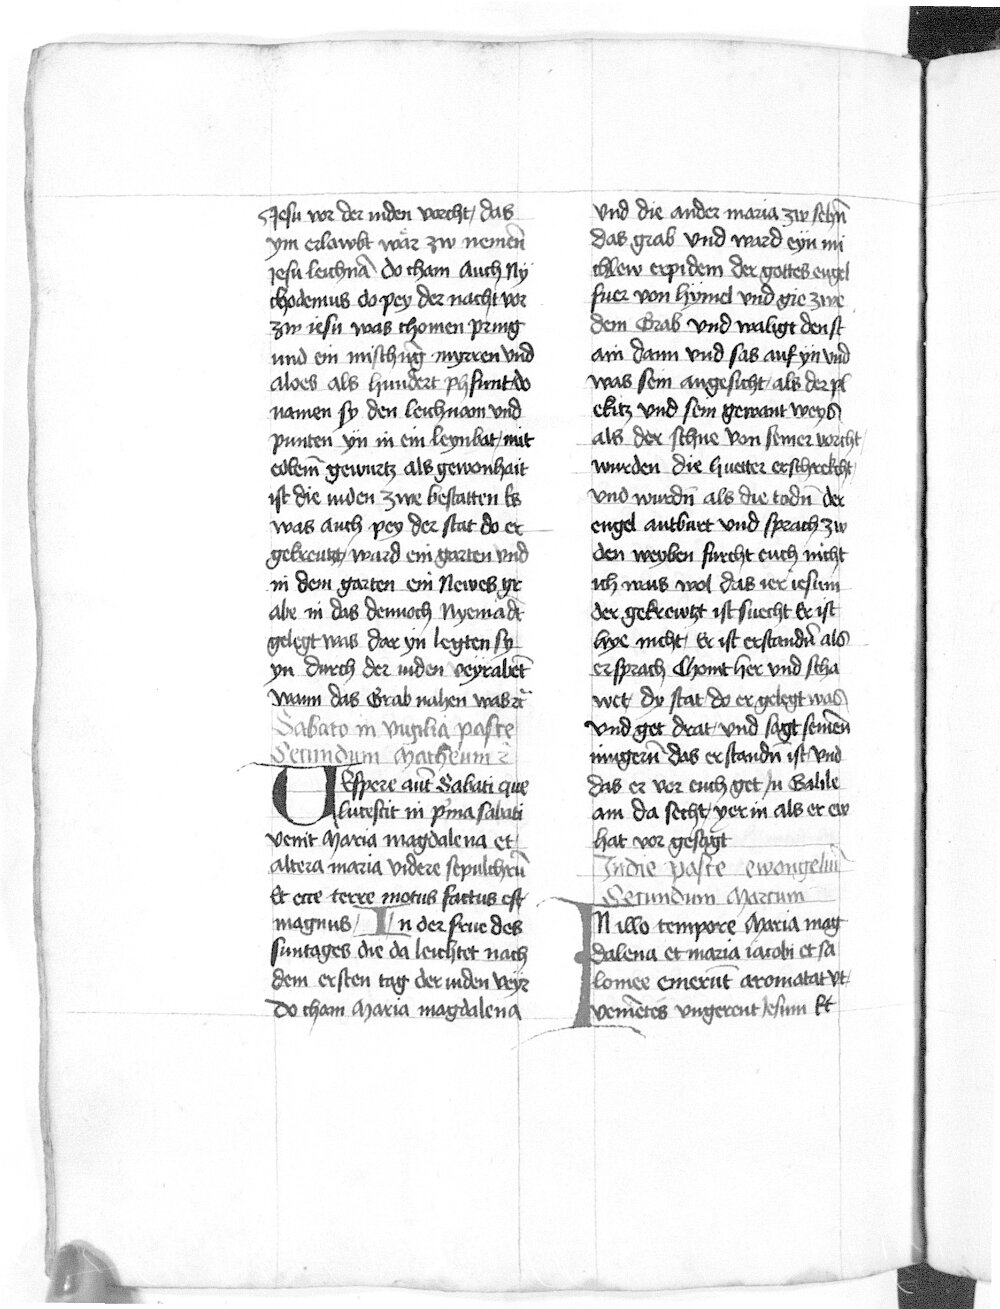 Jesu vor der inden vorcht / das
ym erlawbt wär zw nemen̄
Jesu leichnā do cham Auch Ny
chodemus do pey der nacht vor
zw iesu was chomen pring
und ein misthūg myrren vnd
aloes als hundert phfunt do
namen sy den leichnam vnd
punten yn in ein leynbat / mit
edelem̄ gewurtz als gewonhait
ist die inden zwe bestatten Es
was Auch pey der stat do er
gekreutzt ward ein garten vnd
in dem garten ein Newes gr
abe in das dennoch Nyemādt
gelegt was dar yn legten sy
yn durch der inden veyrabet̄
wann das Grab nahen was r̄
Sabato in vigilia pasce
Secundum Matheum
VEspere aut̄ Sabati que
lucescit in pīma sabati
venit Maria magdalena et
altera maria videre sepulchrū
Et ecce terre motus factus est
magnus / In der frue des
suntages die da leichtet nach
dem ersten tag der inden veyr
Do cham Maria magdalena
vnd die ander maria zw sehn̄
das grab vnd ward eyn mi
chlew erpidem der gottes engel
fuer von hymel vnd gie zwe
dem Grab vnd waligt den st
ain dann vnd sas auf yn vnd
was sein angesicht / als der pl
ekitz vnd sein gewant weys
als der schne von seiner vorcht /
wurden die hueter erschrekcht /
vnd wurdn̄ als die todn̄ der
engel antburt vnd sprach zw
den weyben furcht euch nicht
ich wais wol das ier iesum
der gekrewtzt ist suecht Er ist
hye nicht / Er ist erstandn̄ als
er sprach Chomt her vnd scha
wet / dy stat do er gelegt was
vnd get drat / vnd sagt seinen̄
iungern̄ das er standn̄ ist / vnd
das er vor euch get Jn Galile
am da secht / yer in als er ew
hat vor gesagt
In die pasce ewangeliū
Secundum Marcum
IN illo tempore Maria mag
dalena et maria iacobi et sa
lomee emerūt aromata vt
veniētes vngerent Jesum Et